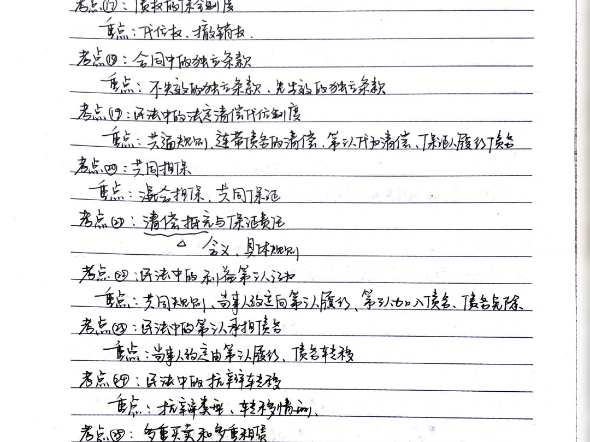 考点⑰：债权的保全制度
重点：代位权、撤销权.
考点⑱：合同中的独立条款
重点：不失效的独立条款、失效的独立条款
考点⑲：民法中的法定清偿代位制度
重点：共通规则、连带债务的清偿、第三人代为清偿、保证人履行债务
考点⑳：共同担保
重点：混合担保、共同保证
考点㉑：清偿抵充与保证责任
△ 含义、具体规则
考点㉒：民法中的利益第三人
重点：共同规则、当事人约定向第三人履行、第三人加入债务、债务免除
考点㉓：民法中的第三人承担债务
重点：当事人约定由第三人履行、债务转移
考点㉔：民法中的抗辩转移
重点：抗辩类型、转移情形.
考点㉕：多重买卖和多重租赁